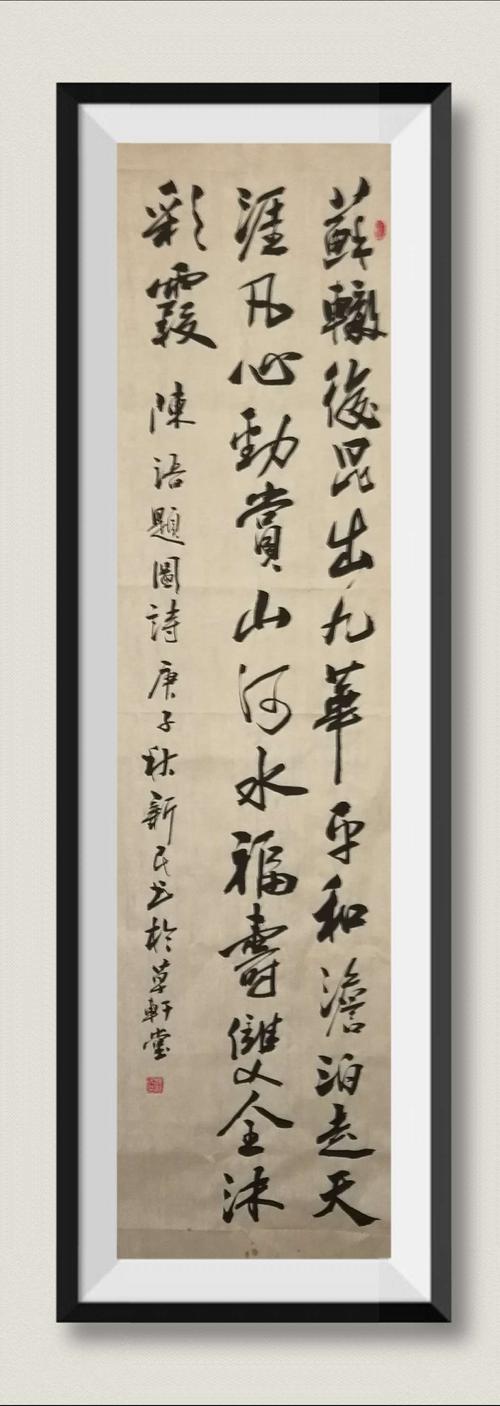 蘇轍後昆出九華平和澹泊走天
涯凡心勁賞山河水福壽雙全沐
彩霞
陳語題圖詩庚子秋新民书於草軒堂